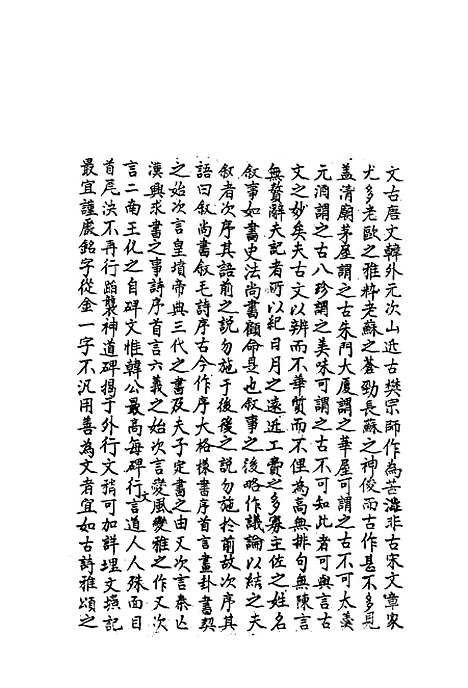 文古唐文韓外元次山近古樊宗師作為苦澁非古宋文章家
尤多老歐之雅粹老蘇之蒼勁長蘇之神俊而古作甚不多見
蓋清廟茅屋謂之古朱門大厦謂之華屋可謂之古不可太羹
元酒謂之古八珍謂之美味可謂之古不可知此者可與言古
文之妙矣夫古文以辨而不華質而不俚為高無排句無陳言
無贅辭夫記者所以紀日月之遠近工費之多寡主佐之姓名
叙事如書史法尚書顧命是也叙事之後略作議論以結之夫
叙者次序其語前之說勿施于後後之說勿施於前故次序其
語曰叙尚書叙毛詩序古今作序大格樣書序首言畫卦書契
之始次言皇墳帝典三代之書及夫子定書之由又次言秦亡
漢興求書之事詩序首言六義之始次言變風變雅之作又次
言二南王化之自碑文惟韓公最高每碑行文言道人人殊面目
首尾決不再行蹈襲神道碑揭于外行文稍可加詳埋文壙記
最宜謹嚴銘字從金一字不汎用善為文者宜如古詩雅頌之